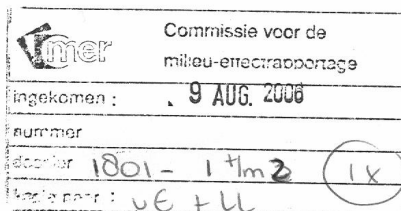 mer
Commissie voor de
milieu-effectrapportage
ingekomen : . 9 AUG. 2006
nummer
dossier 1801 - 1 t/m 2 1x
kopie naar :